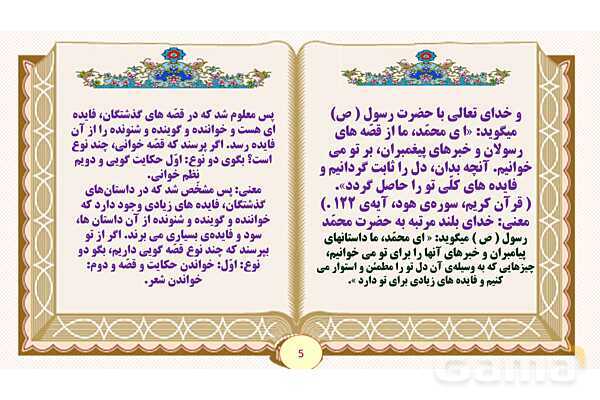 و خدای تعالی با حضرت رسول ( ص)
میگوید: «ا ی محمّد، ما از قصّه های
رسولان و خبرهای پیغمبران، بر تو می
خوانیم. آنچه بدان، دل را ثابت گردانیم و
فایده های کلّی تو را حاصل گردد».
( قرآن کریم، سوره‌ی هود، آیه‌ی ۱۲۲ .)
معنی: خدای بلند مرتبه به حضرت محمّد
رسول ( ص ) میگوید: « ای محمّد، ما داستانهای
پیامبران و خبرهای آنها را برای تو می خوانیم،
چیزهایی که به وسیله‌ی آن دل تو را مطمئن و استوار می
کنیم و فایده های زیادی برای تو دارد ».
پس معلوم شد که در قصّه های گذشتگان، فایده
ای هست و خواننده و گوینده و شنونده را از آن
فایده رسد. اگر پرسند که قصّه خوانی، چند نوع
است؟ بگوی دو نوع: اوّل حکایت گویی و دویم
نظم خوانی.
معنی: پس مشخّص شد که در داستان‌های
گذشتگان، فایده های زیادی وجود دارد که
خواننده و گوینده و شنونده از آن داستان ها،
سود و فایده‌ی بسیاری می برند. اگر از تو
بپرسند که چند نوع قصّه گویی داریم، بگو دو
نوع: اوّل: خواندن حکایت و قصّه و دوم:
خواندن شعر.
5
Gama